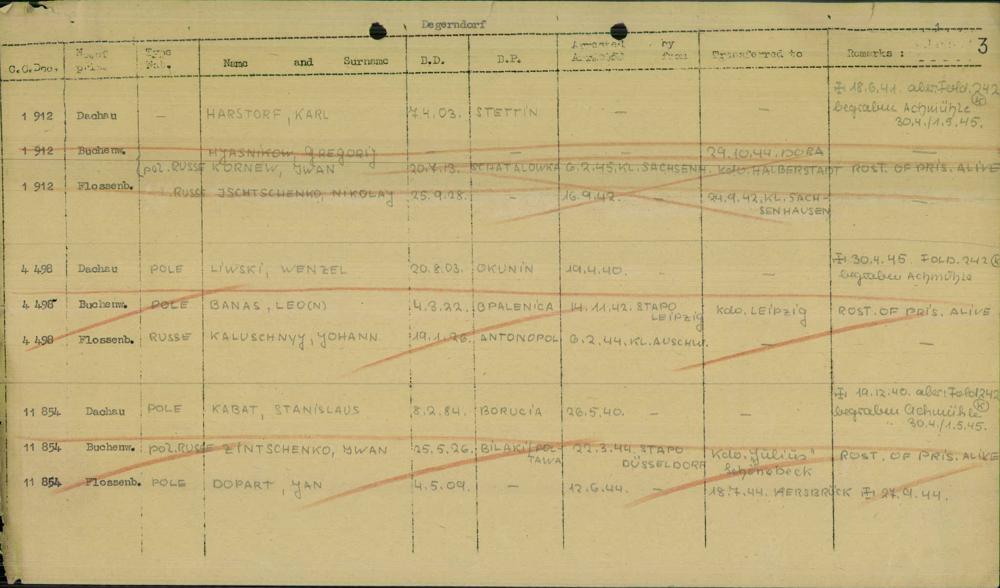 Degerndorf
3
C.C.Doc. No.of pris. Type Nab. Name and Surname D.D. D.P. Arrested by Transferred to Remarks :
from
1 912 Dachau — HARSTORF, KARL 7.4.03. STETTIN — — 18.6.41. aber: Fold. 242
begraben Achmühle
30.4./1.5.45.
1 912 Buchenw. GREGORIJ 29.10.44. DORA
pol. RUSSE KORNEW, IWAN 20.4.13. SCHATALOWKA 6.2.45, KL. SACHSENH. Kdo. HALBERSTADT ROST. OF PRIS. ALIVE
1 912 Flossenb. RUSSE ISCHTSCHENKO, NIKOLAJ 25.9.28. — 16.9.42. 24.9.42. KL. SACH-
SENHAUSEN —
4 498 Dachau POLE LIWSKI, WENZEL 20.8.03. OKUNIN 19.4.40. — 30.4.45. FOLD. 242
begraben Achmühle
4 498 Buchenw. POLE BANAS, LEO(N) 4.8.22. OPALENICA 14.11.42. STAPO
LEIPZIG Kdo. LEIPZIG ROST. OF PRIS. ALIVE
4 498 Flossenb. RUSSE KALUSCHNYY, YOHANN 19.1.26. ANTONOPOL 6.2.44, KL. AUSCHW. — —
11 854 Dachau POLE KABAT, STANISLAUS 8.2.84. BORUCIA 26.5.40. — — 19.12.40. aber: Fold 242
begraben Achmühle
30.4./1.5.45.
11 854 Buchenw. pol. RUSSE ZINTSCHENKO, YWAN 25.5.26. BILAKI/POL-
TAWA 22.3.44. STAPO
DÜSSELDORF Kdo. "Julius"
Schönebeck ROST. OF PRIS. ALIVE
11 854 Flossenb. POLE DOPART, YAN 4.5.09. — 12.6.44. — 18.7.44. HERSBRUCK 27.9.44.